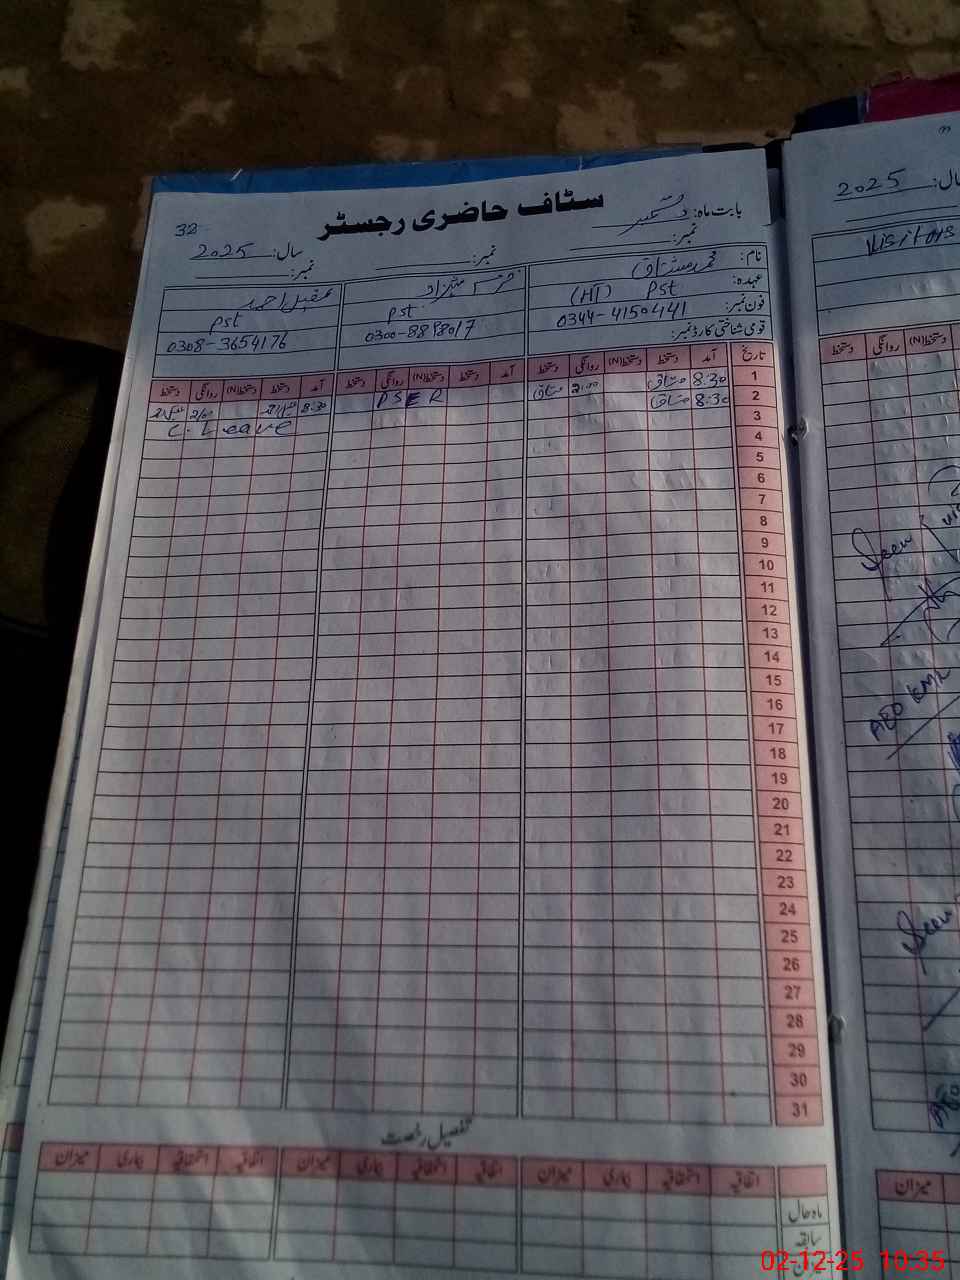 32
سٹاف حاضری رجسٹر
بابت ماہ: دسمبر
سال: 2025
نمبر:
نمبر:
نمبر:
نام: محمد مشتاق
عہدہ: Pst (HT)
فون نمبر: 0344-4150441
قومی شناختی کارڈ نمبر:
شہزاد
Pst
0300-8898017
عقیل احمد
Pst
0308-3654176
تاریخ آمد دستخط دستخط(N) روانگی دستخط آمد دستخط دستخط(N) روانگی دستخط آمد دستخط دستخط(N) روانگی دستخط
1 8:30 مشتاق 2:00 مشتاق PSER 8:30 2/00
2 8:30 مشتاق C. Leave
3
4
5
6
7
8
9
10
11
12
13
14
15
16
17
18
19
20
21
22
23
24
25
26
27
28
29
30
31
تفصیل رخصت
اتفاقیہ استحقاقیہ بیماری میزان اتفاقیہ استحقاقیہ بیماری میزان اتفاقیہ استحقاقیہ بیماری میزان
ماہ حال
سابقہ
سال: 2025
Visitors
دستخط(N) روانگی دستخط
Seen
AEO KMR
Seen
AEO
میزان
02-12-25 10:35